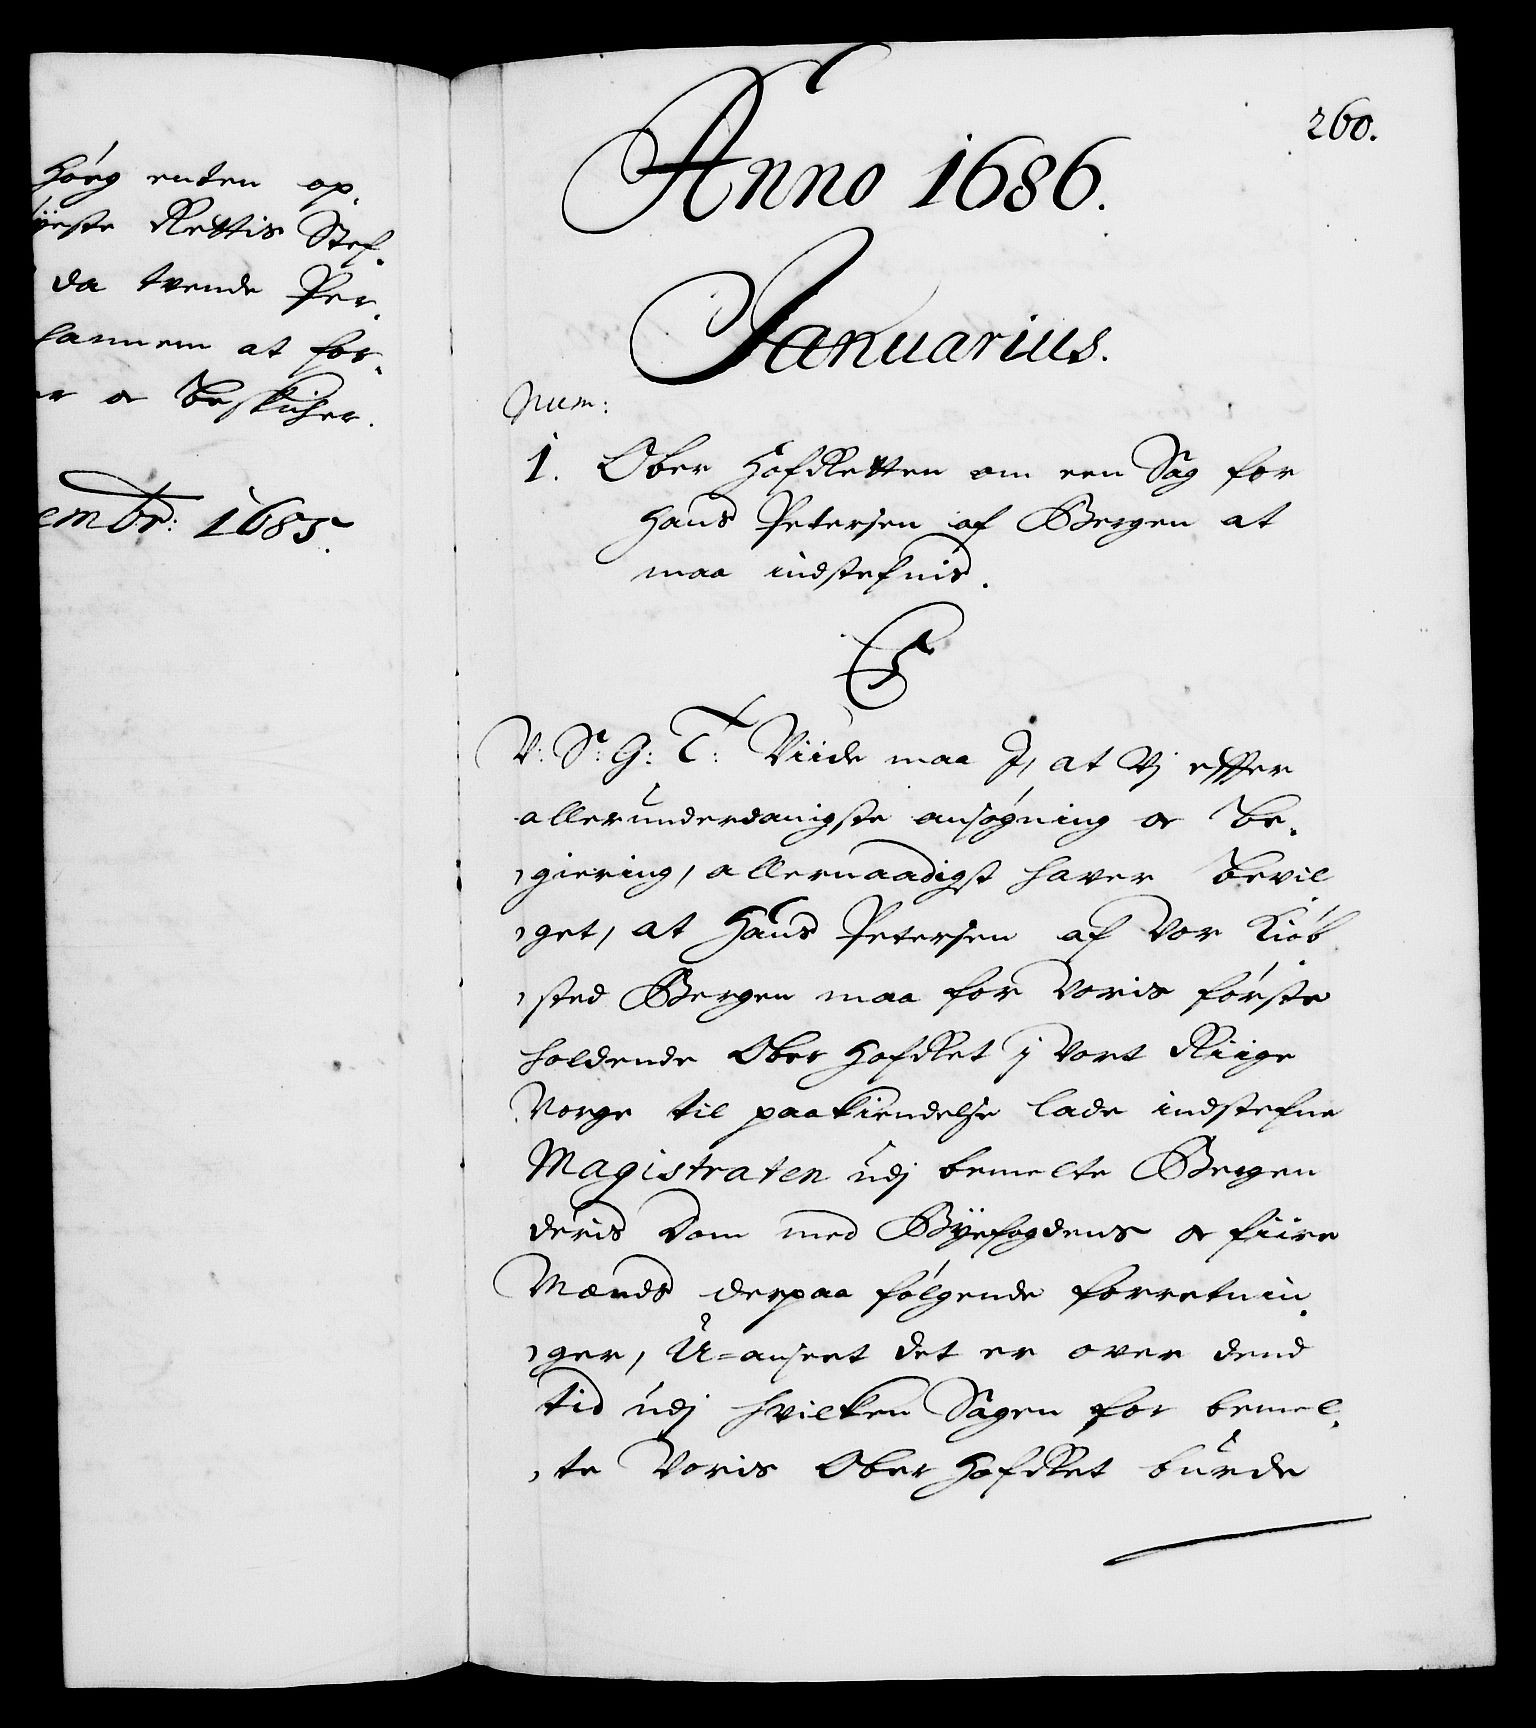 Høeg enten op-
ÿeste Rettis Stef-
da tvende Per-
hannem at for-
er oc beskicher.
embr: 1685.
260.
Anno 1686.
Januarius.
Num:
1. Ober HofRetten om een Sag for
Hans Petersen af Bergen at
maa indstefnis.
C5
V: S: G: T: Viide maa I, at Vj effter
allerunderdanigste ansøgning oc be-
giering, allernaadigst hafver bevil-
get, at Hans Petersen af Vor Kiøb-
sted Bergen maa for Voris første
holdende Ober HofRet j Vort Riige
Norge til paakiendelse lade indstefne
Magistraten udj bemelte Bergen
deris Dom med Byefogdens oc fiire
Mænds derpaa følgende forretnin-
ger, U=anseet det er over dend
tid udj hvilken Sagen for bemel-
te Voris Ober HofRet burde